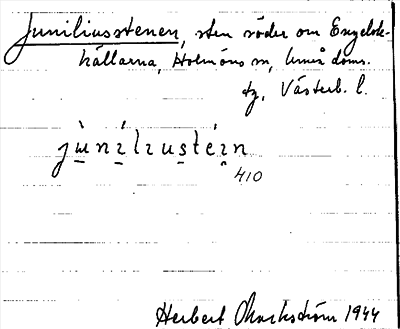 Juniliusstenen, sten söder om Engelsk-
hällarna, Holmöns sn, Umeå doms.
tg, Västerb. l.
410
Herbert Markström 1944